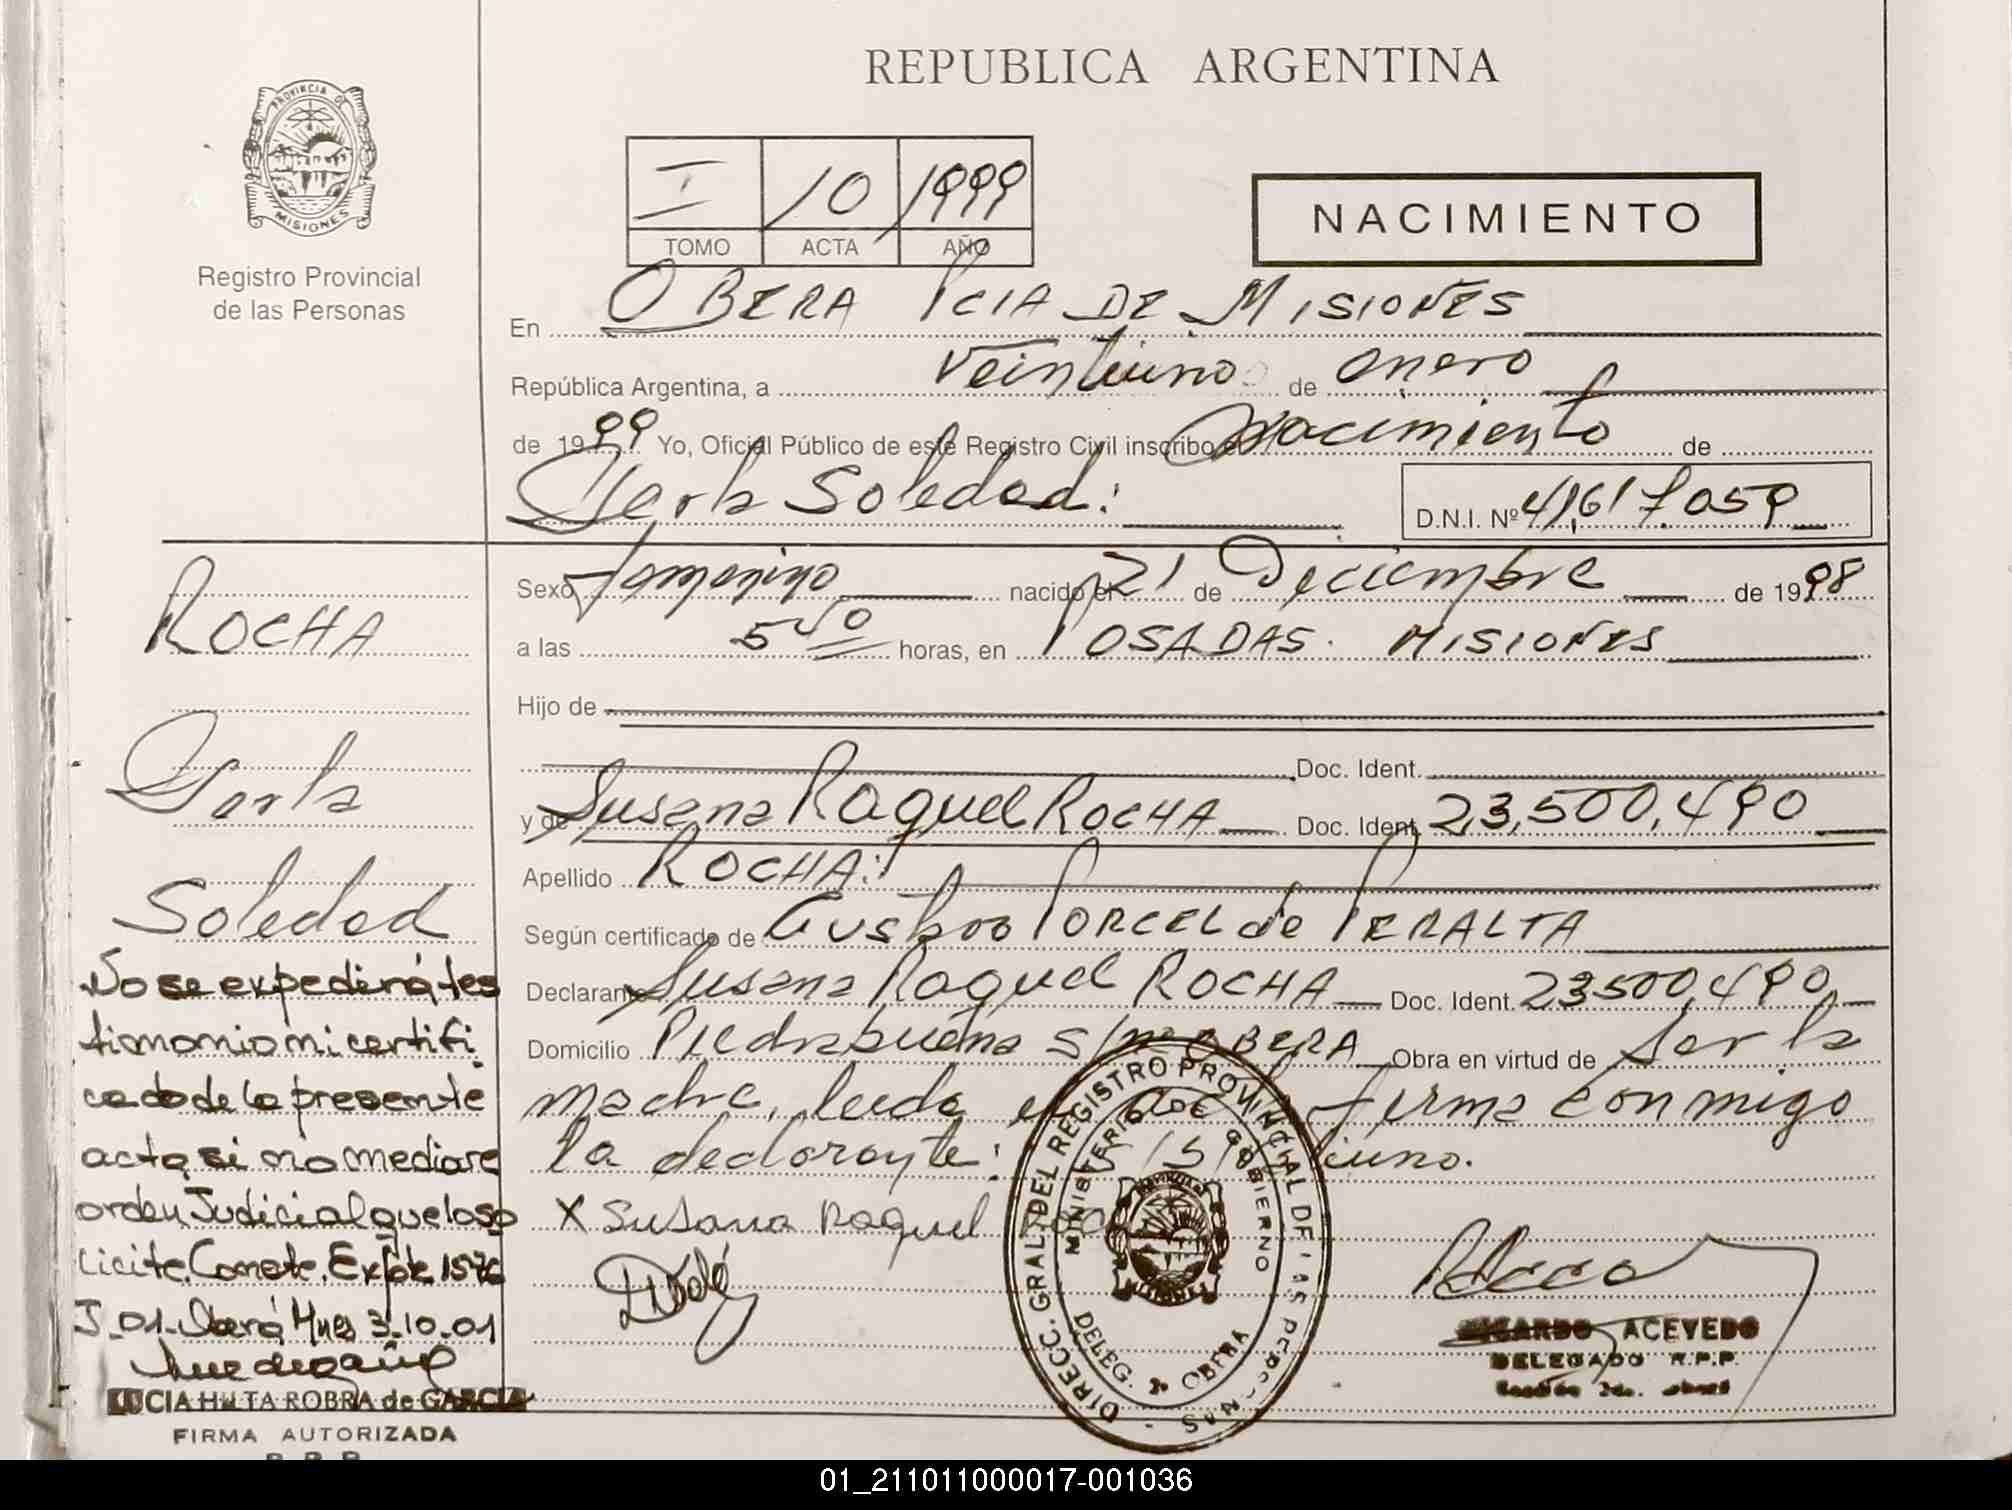 REPUBLICA ARGENTINA
PROVINCIA DE
MISIONES
Registro Provincial
de las Personas
I 10 1999
TOMO ACTA AÑO
NACIMIENTO
En OBERA PCIA DE MISIONES
República Argentina, a Veintiuno de enero
de 1999 Yo, Oficial Público de este Registro Civil inscribo el Nacimiento de
Soledad:
D.N.I. Nº 41,617,059
Sexo femenino nacido el 21 de Diciembre de 1998
a las 5 40 horas, en POSADAS. MISIONES
Hijo de
Doc. Ident.
y de Susana Raquel ROCHA Doc. Ident. 23,500,490
Apellido ROCHA:
Según certificado de Gustavo PORCEL de PERALTA
Declarante Susana Raquel ROCHA Doc. Ident. 23500,490
Domicilio Piedrabuena s/nº OBERA Obra en virtud de Ser la
madre, leida el acta firma conmigo
la declarante:
X Susana Raquel
ROCHA
Soledad
No se expedirá tes
timonio ni certifi
cado de la presente
acta si no mediare
orden Judicial que lo so
licite. Conste. Expte 1576
J-01- Oberá Mnes 3-10-01
LUCIA HILTA ROBRA de GARCIA
FIRMA AUTORIZADA
R.P.P.
DIRECC. GRAL. DEL REGISTRO PROVINCIAL DE LAS PERSONAS
MINISTERIO DE GOBIERNO
DELEG. 2ª OBERA
RICARDO ACEVEDO
DELEGADO R.P.P.
01_211011000017-001036